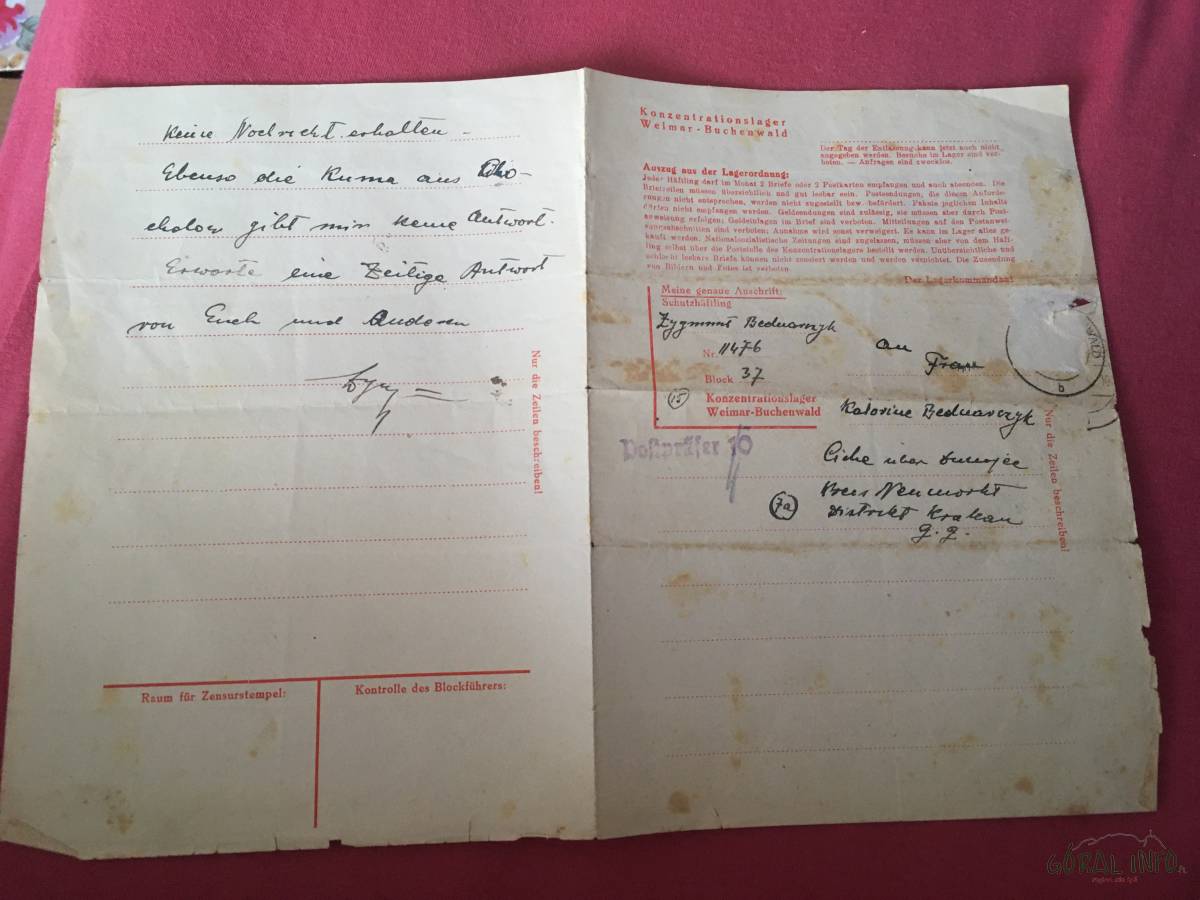 Keine Nachricht erhalten –
Ebenso die Kuma aus Cho-
cholow gibt mir keine Antwort.
Erwarte eine Zeitige Antwort
von Euch und Anderen
Nur die Zeilen beschreiben!
Raum für Zensurstempel:
Kontrolle des Blockführers:
Konzentrationslager
Weimar-Buchenwald
Der Tag der Entlassung kann jetzt noch nicht
angegeben werden. Besuche im Lager sind ver-
boten. — Anfragen sind zwecklos.
Auszug aus der Lagerordnung:
Jeder Häftling darf im Monat 2 Briefe oder 2 Postkarten empfangen und auch absenden. Die
Briefzeilen müssen übersichtlich und gut lesbar sein. Postsendungen, die diesen Anforde-
rungen nicht entsprechen, werden nicht zugestellt bzw. befördert. Pakete jeglichen Inhalts
dürfen nicht empfangen werden. Geldsendungen sind zulässig, sie müssen aber durch Post-
anweisung erfolgen; Geldeinlagen im Brief sind verboten. Mitteilungen auf den Postanwei-
sungsabschnitten sind verboten; Annahme wird sonst verweigert. Es kann im Lager alles ge-
kauft werden. Nationalsozialistische Zeitungen sind zugelassen, müssen aber von dem Häft-
ling selbst über die Poststelle des Konzentrationslagers bestellt werden. Unübersichtliche und
schlecht lesbare Briefe können nicht zensiert werden und werden vernichtet. Die Zusendung
von Bildern und Fotos ist verboten.
Der Lagerkommandant
Meine genaue Anschrift:
Schutzhäftling
Zygmunt Bednarczyk
Nr. 11476
Block 37
(15) Konzentrationslager
Weimar-Buchenwald
Postprüfer 10
an
Frau
Katarine Bednarczyk
Ciche über Dunajec
Kreis Neumarkt
(7a) Distrikt Krakau
G. G.
WALD
b
Nur die Zeilen beschreiben!
GÓRAL INFO.PL